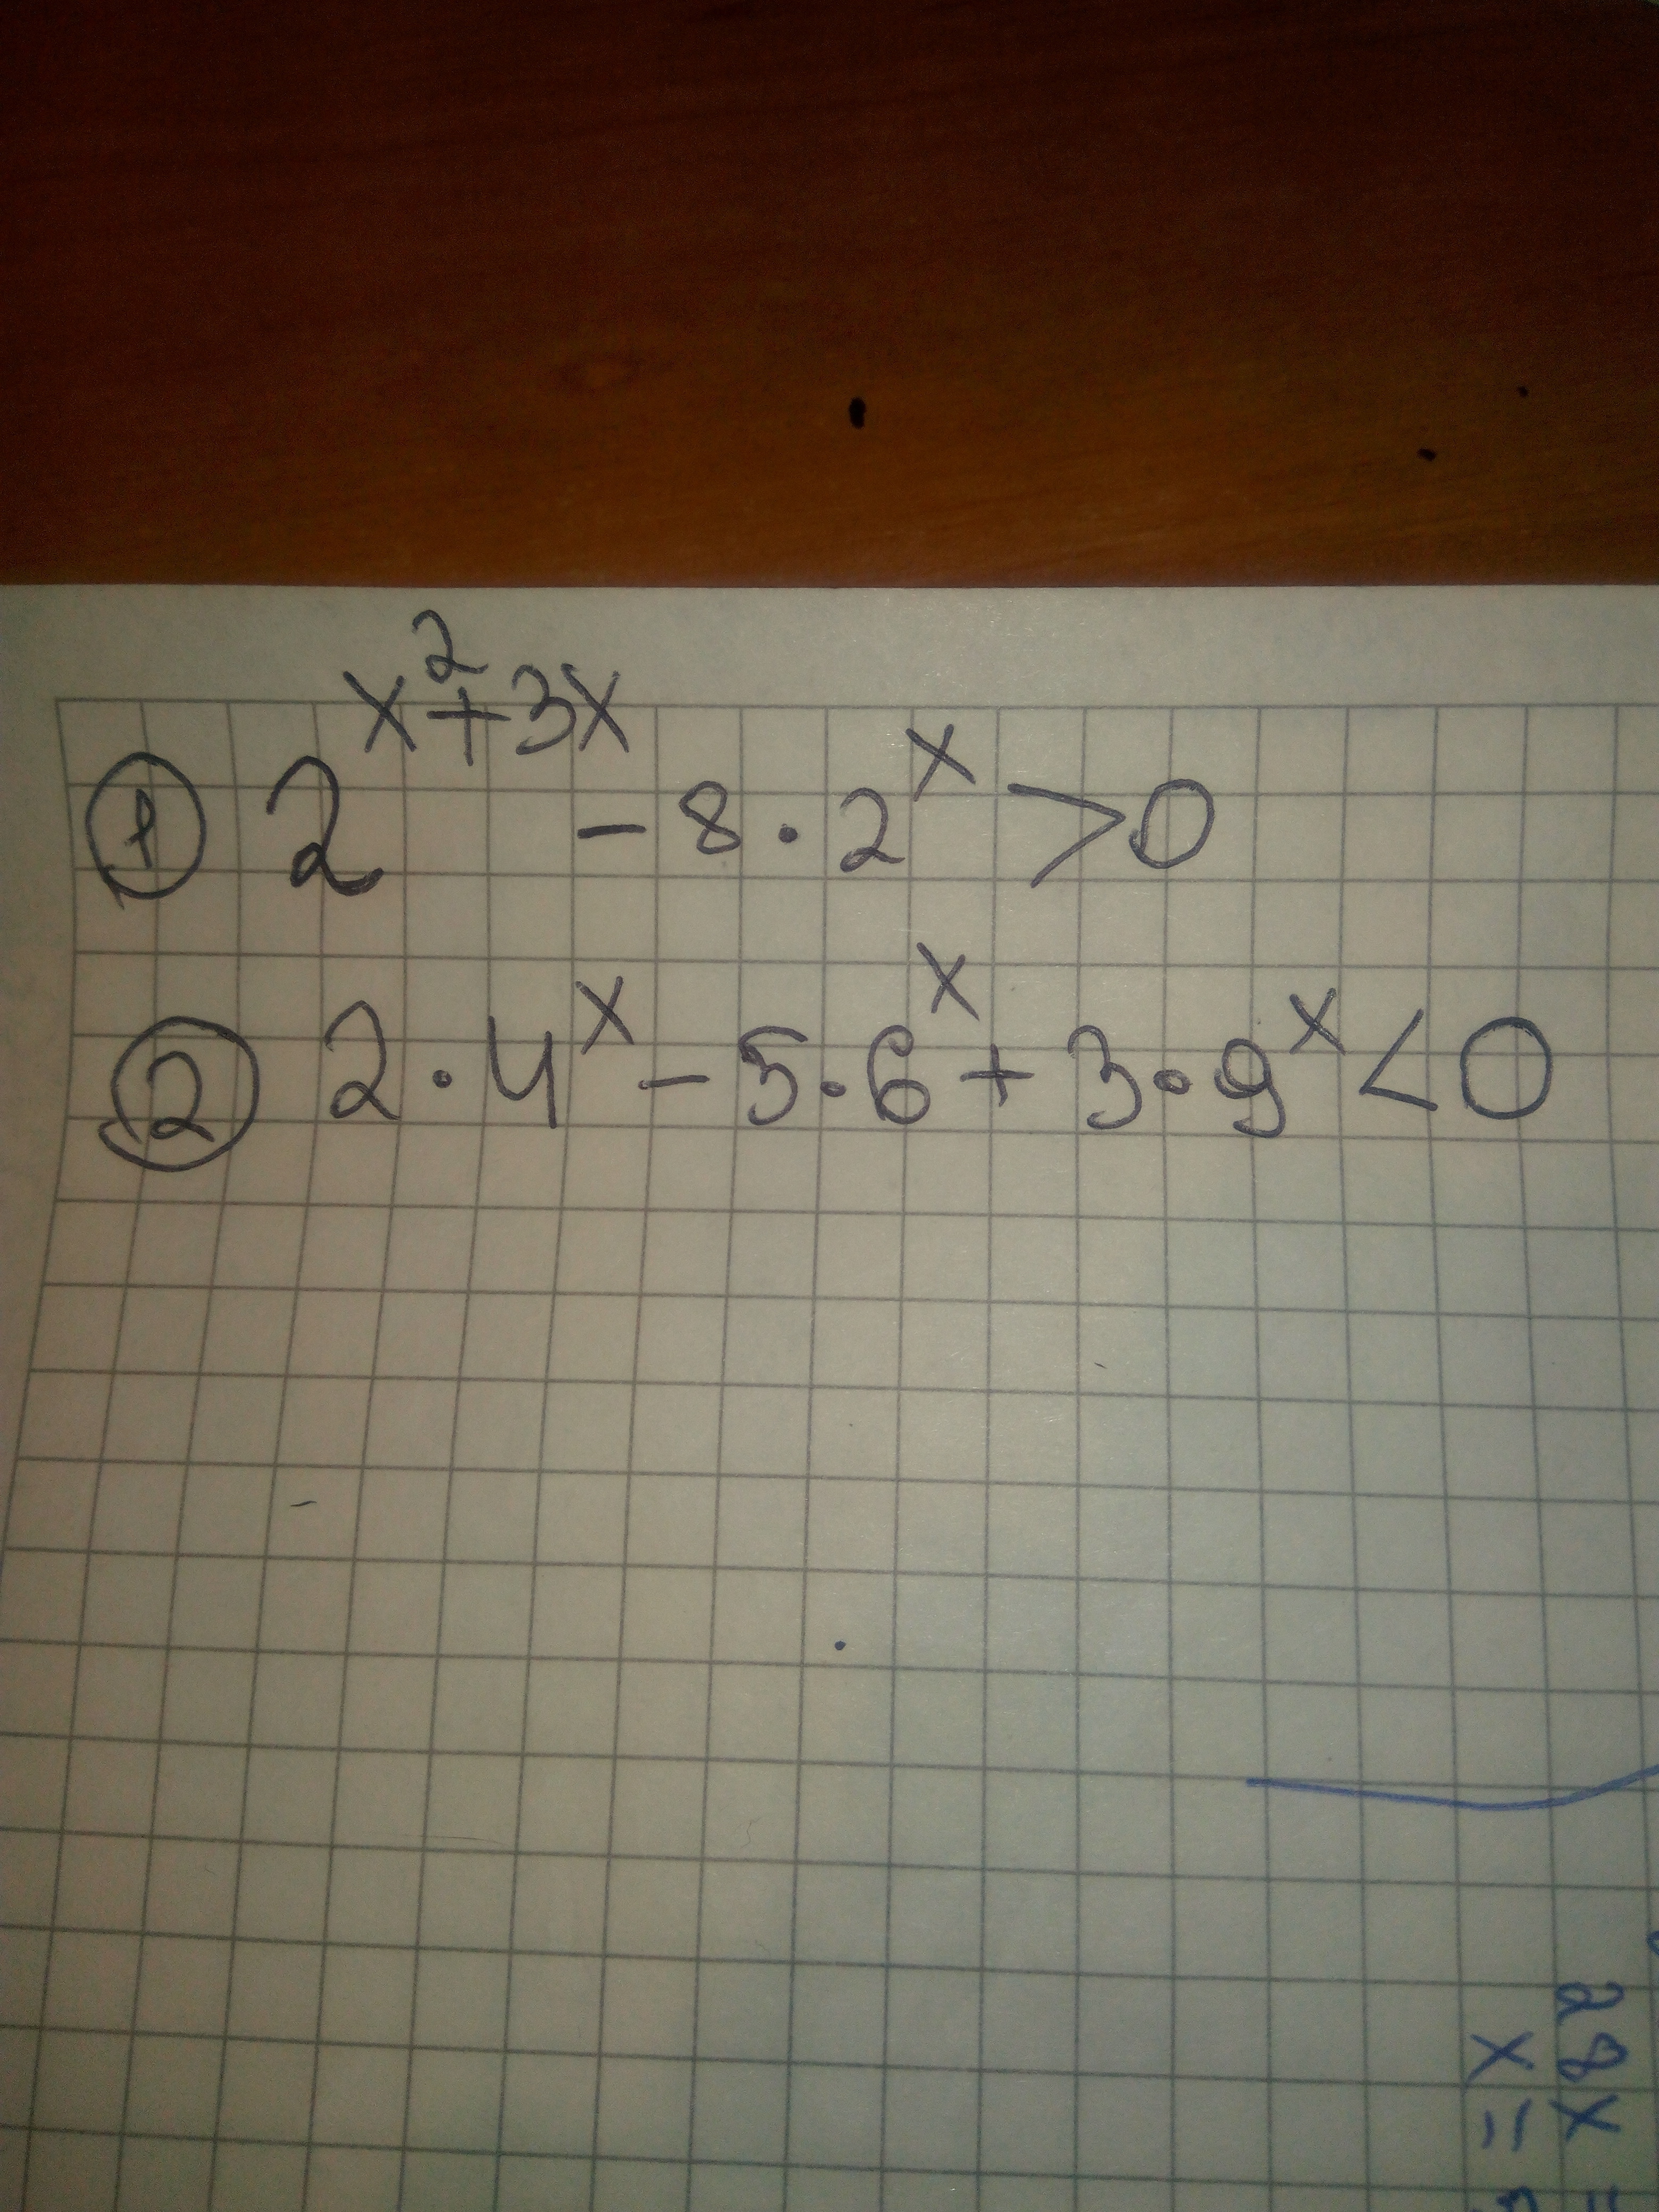 ① 2^{x^2+3x} - 8 · 2^x > 0
② 2 · 4^x - 5 · 6^x + 3 · 9^x < 0
28x =
x =